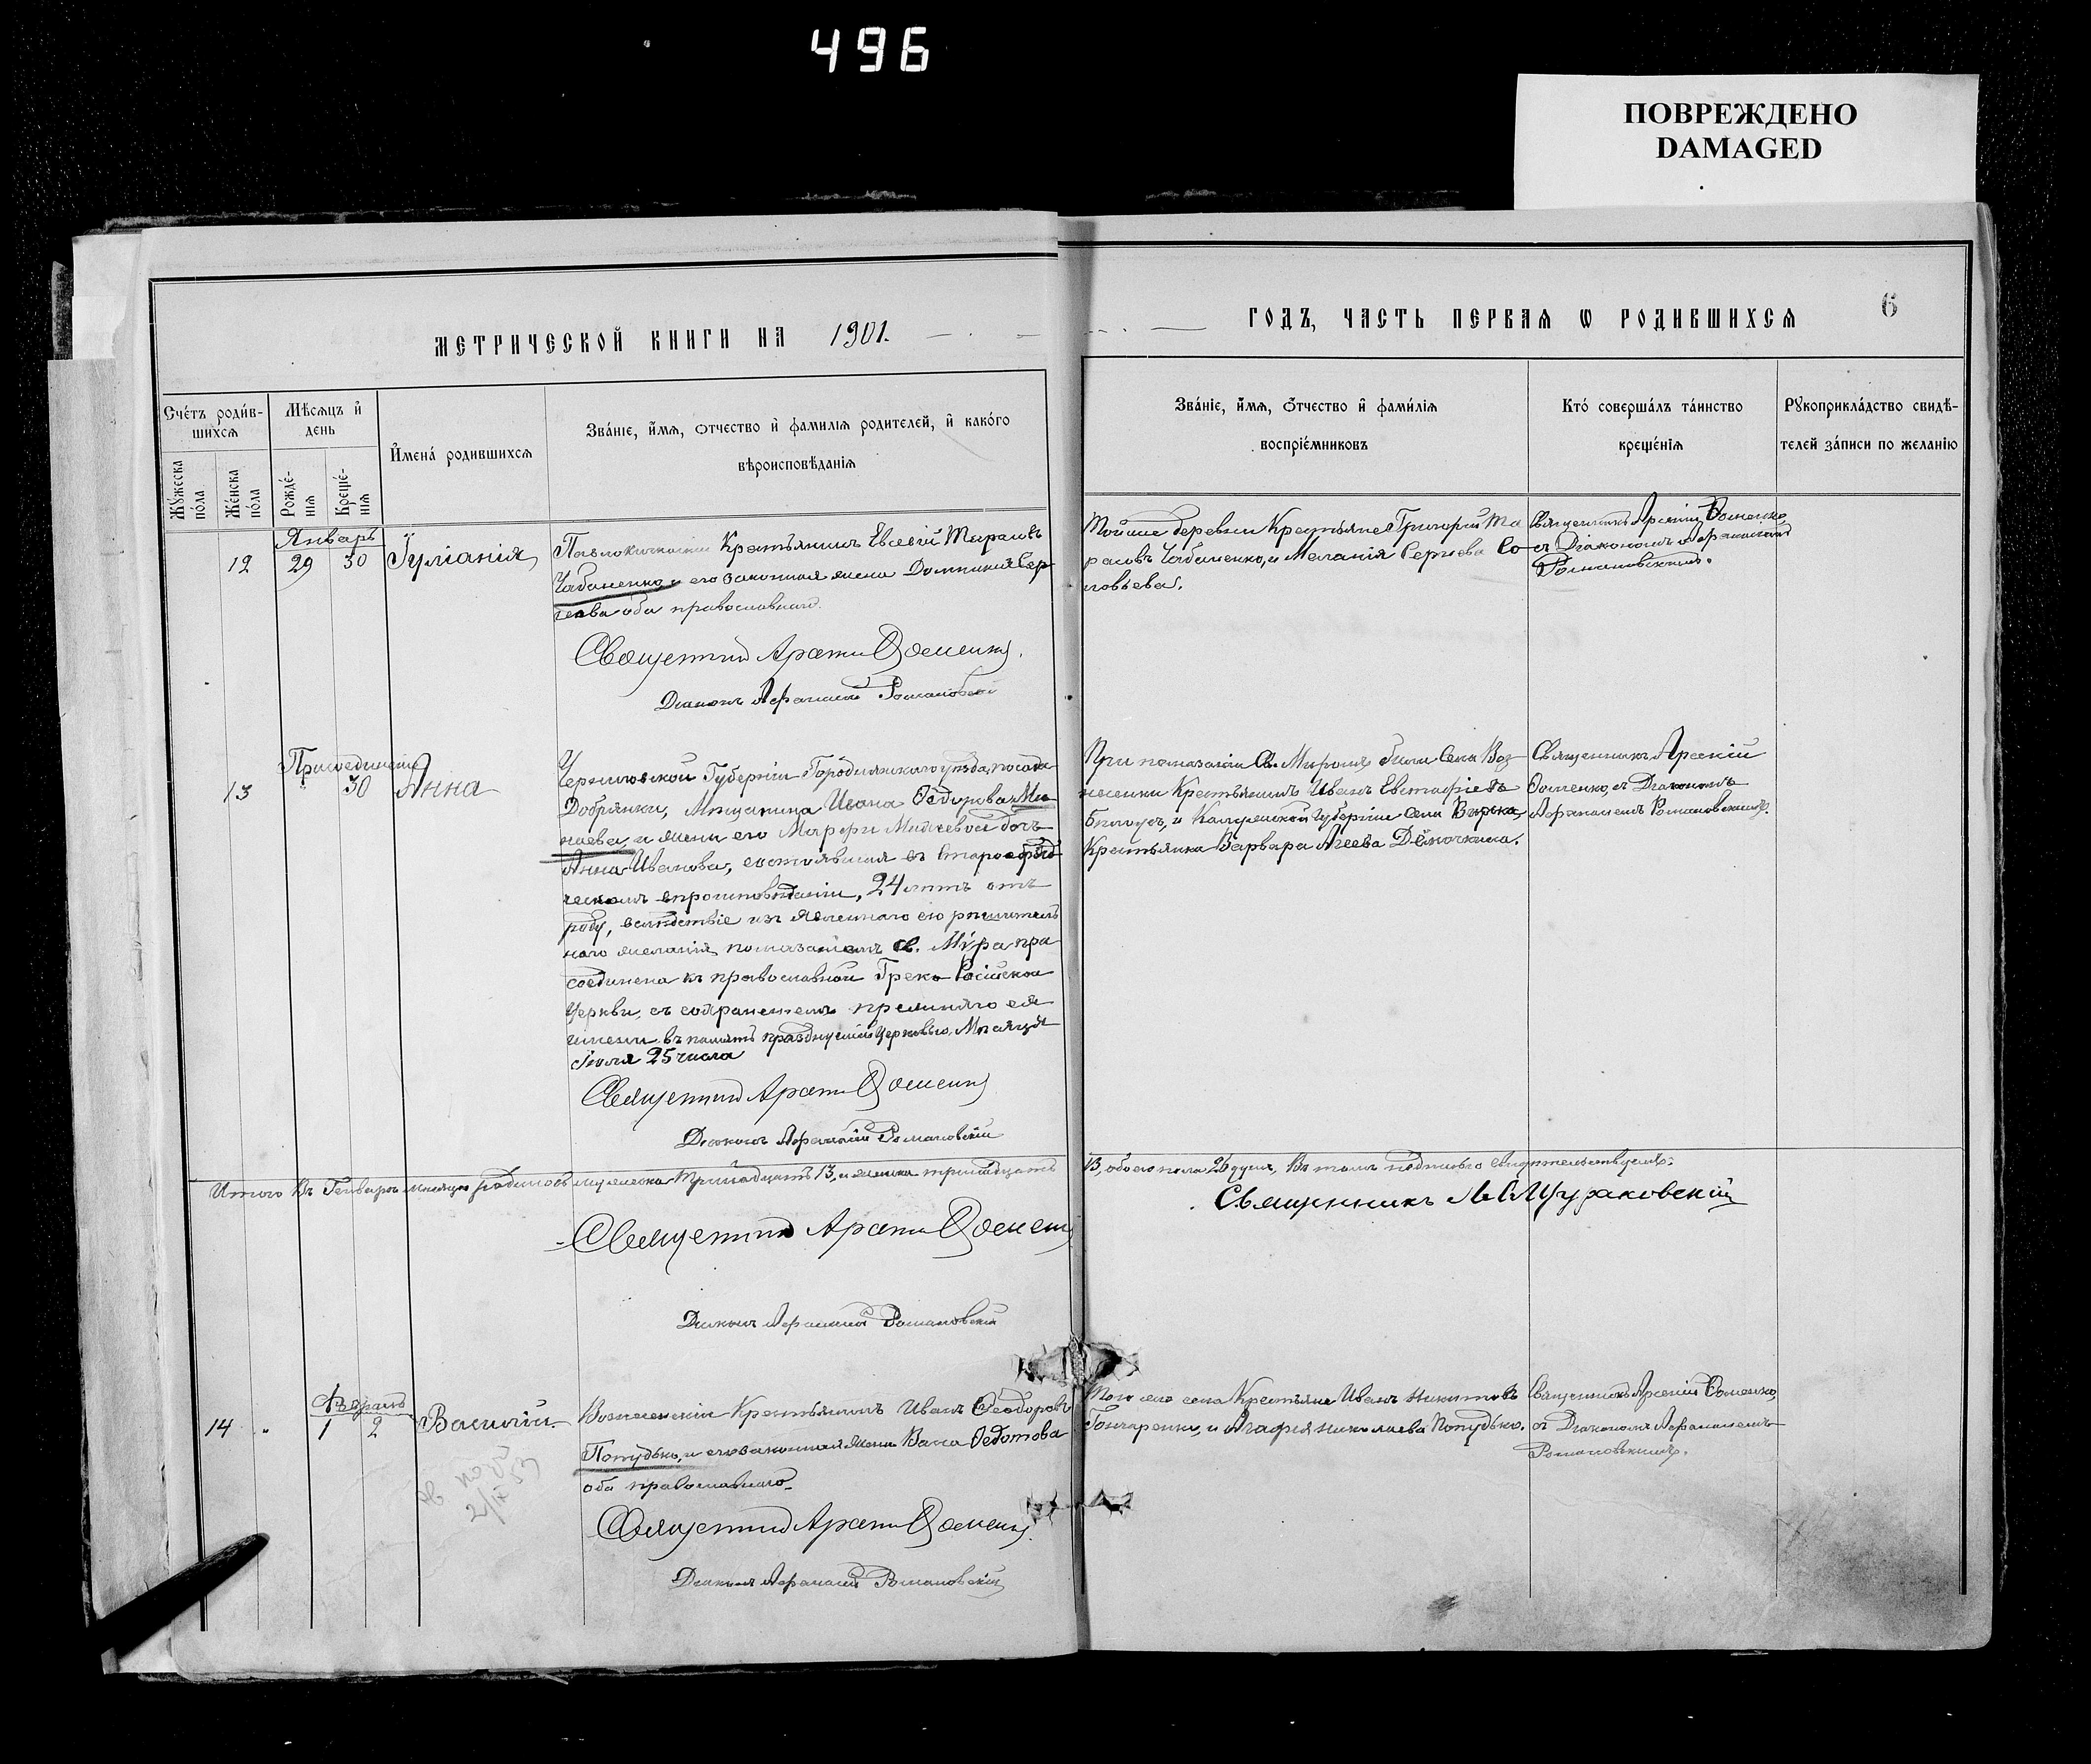 496
ПОВРЕЖДЕНО
DAMAGED
6
МЕТРИЧЕСКОЙ КНИГИ НА 1901.
ГОДЪ, ЧАСТЬ ПЕРВАЯ Ѡ РОДИВШИХСЯ
Счётъ роди́вшихся
Мѣсяцъ и день
Имена́ родившихся
Зва́нїе, и́мя, ѻтчество и фамилїя родителей, и како́го
вѣроисповѣданїя
Му́жеска по́ла
Же́нска по́ла
Рожде́нїя
Креще́нїя
Зва́нїе, и́мя, ѻ́тчество и фами́лїя
воспрїе́мниковъ
Кто́ совершалъ та́инство
креще́нїя
Рукоприкла́дство свидѣ-
телей за́писи по жела́нїю
Январь
12 29 30 Іуліанія
Крестьянинъ Евсевій Тарасовъ
Чабаненко и его законная жена Домникія Сер-
геева оба православнаго.
Священникъ Арсеній Доменко.
Діаконъ Афанасій Романовскій
Тойже деревни Крестьяне Григорій Та
расовъ Чабаненко, и Меланія Сергеева Со-
ловьева.
Священникъ Арсеній Доменко
съ Діакономъ Афанасіемъ
Романовскимъ.
Присоединенія
13 30 Анна
Черниговской Губерніи Городнянскаго уезда, посада
Добрянки, Мещанина Ивана Ѳедорова Ми-
наева, и жены его Марфы дочь
Анна Иванова, состоявшая въ старообряд
ческомъ вероисповеданіи, 24 летъ отъ
роду, вследствіе изъявленнаго ею решитель
наго желанія помазаніемъ Св. Мѵра при
соединена къ православной Греко Россійской
Церкви, съ сохраненіемъ прежняго ея
имени въ память празднуемой Церковью, Месяца
Іюля 25 числа
Священникъ Арсеній Доменко
Діаконъ Афанасій Романовскій
При помазаніи Св. Миромъ были Села Воз-
несенки Крестьянинъ Иванъ Евстафіевъ
Билоусъ, и Калужской Губерніи Села
Крестьянка Варвара Агеева
Священникъ Арсеній
Доменко, съ Діакономъ
Афанасіемъ Романовскимъ.
Итого въ Генваре месяце родилось мужеска тринадцать 13, и женска тринадцать
13, обоего пола 26 душъ, въ томъ подписью свидетельствуемъ:
Священникъ Арсеній Доменко
Священникъ
Діаконъ Афанасій Романовскій
Февраль
14 " 1 2 Василій.
Вознесенскій Крестьянинъ Иванъ Ѳеодоровъ
Попудько, и его законная жена Васса Ѳедотова
оба православнаго.
Священникъ Арсеній Доменко.
Діаконъ Афанасій Романовскій
Того же села Крестьяне Иванъ Никитовъ
Гончаренко, и Агафія Николаева Попудько.
Священникъ Арсеній Доменко,
съ Діакономъ Афанасіемъ
Романовскимъ.